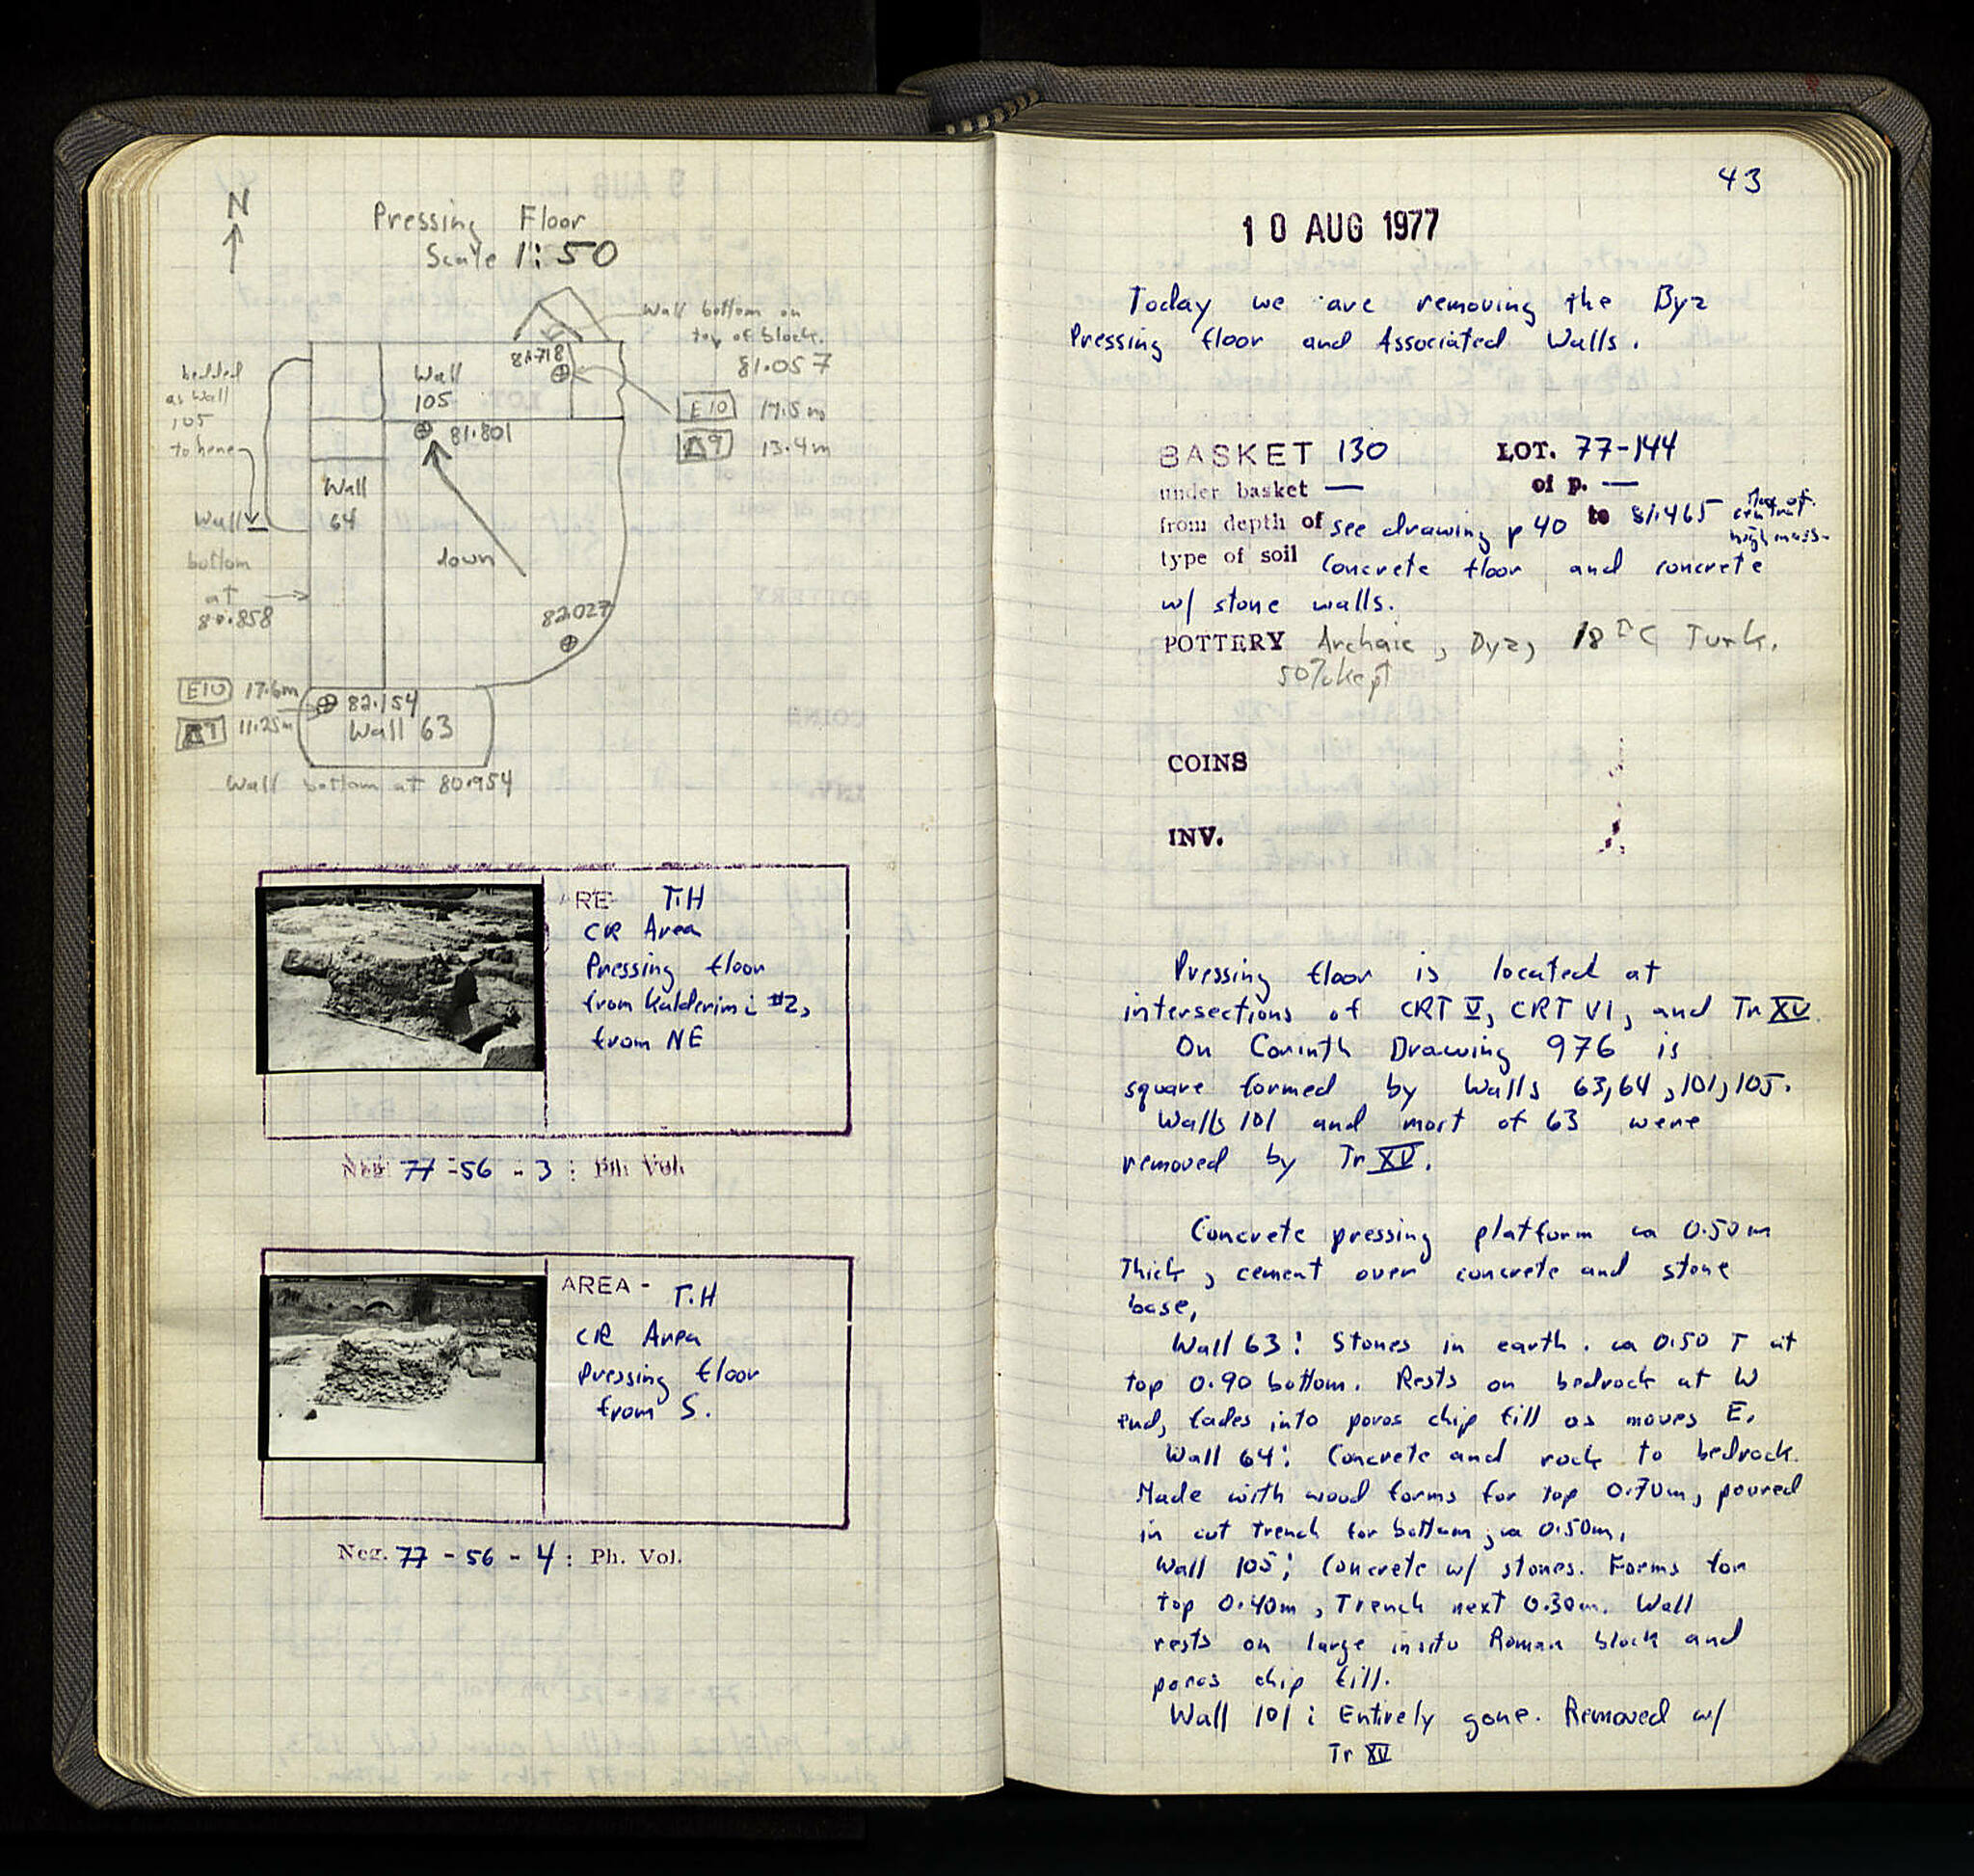 N
Pressing Floor
Scale 1:50
Wall bottom on
top of block.
81.057
bedded
as wall
105
to here
Wall
bottom
at
80.858
Wall
105
81.718
81.801
E10 17.5m
A9 13.4m
Wall
64
down
82.027
E10 17.6m
11.25m
82.154
Wall 63
Wall bottom at 80.954
T.H
CR Area
Pressing floor
from Kalderimi #2,
from NE
Neg. 77-56-3: Ph. Vol.
AREA- T.H
CR Area
Pressing floor
from S.
Neg. 77-56-4: Ph. Vol.
43
10 AUG 1977
Today we are removing the Byz
Pressing floor and Associated Walls.
BASKET 130 LOT. 77-144
under basket — of p. —
from depth of see drawing p 40 to 81.465
type of soil Concrete floor and concrete
w/ stone walls.
POTTERY Archaic, Byz, 18th C Turk.
50% kept
COINS
INV.
Pressing floor is located at
intersections of CRT V, CRT VI, and Tr XV.
On Corinth Drawing 976 is
square formed by Walls 63, 64, 101, 105.
Walls 101 and most of 63 were
removed by Tr XV.
Concrete pressing platform ca 0.50m
Thick, cement over concrete and stone
base,
Wall 63: Stones in earth. ca 0.50 T at
top 0.90 bottom. Rests on bedrock at W
end, fades into poros chip fill as moves E.
Wall 64: Concrete and rock to bedrock.
Made with wood forms for top 0.70m, poured
in cut trench for bottom, ca 0.50m,
Wall 105: Concrete w/ stones. Forms for
top 0.40m, Trench next 0.30m. Wall
rests on large insitu Roman block and
poros chip fill.
Wall 101: Entirely gone. Removed w/
Tr XV